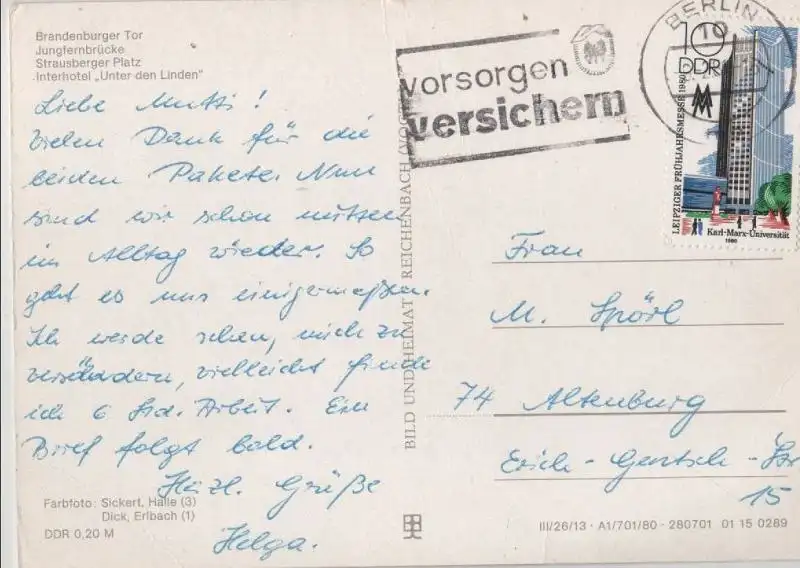 Brandenburger Tor
Jungfernbrücke
Strausberger Platz
Interhotel „Unter den Linden"
Liebe Mutti!
Vielen Dank für die
beiden Pakete. Nun
sind wir schon mitten
im Alltag wieder. So
geht es uns einigermaßen.
Ich werde sehen, mich zu
verändern, vielleicht finde
ich 6 Std. Arbeit. Ein
Brief folgt bald.
Herzl. Grüße
Helga.
Farbfoto: Sickert, Halle (3)
Dick, Erlbach (1)
DDR 0,20 M
BILD UND HEIMAT REICHENBACH (VOGTL
vorsorgen
versichern
BERLIN
10
DDR
LEIPZIGER FRÜHJAHRSMESSE 1980
Karl-Marx-Universität
1980
Frau
M. Spörl
74 Altenburg
Erich-Gentsch-Str
15
III/26/13 · A1/701/80 · 280701 01 15 0289